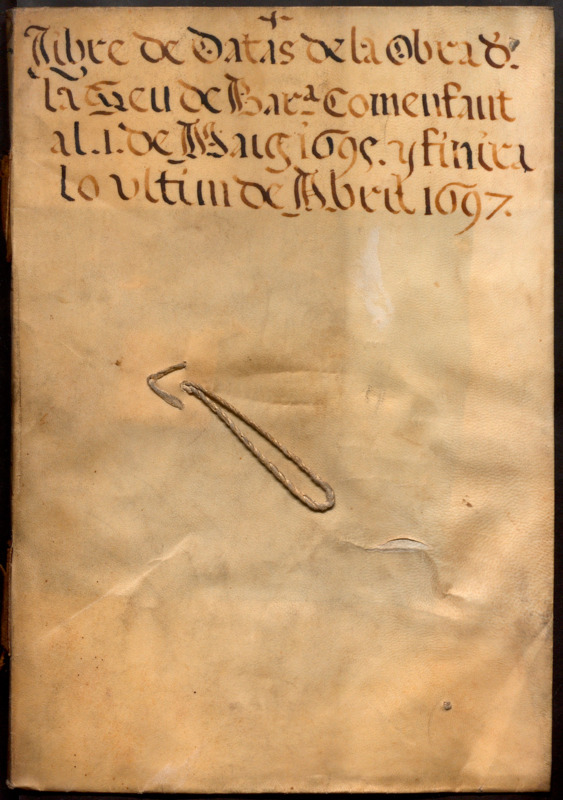 Llibre de Datas de la Obra d.
la Seu de Bar.ª Comensant
al .1. de Maig 1695. y finira
lo ultim de Abril 1697.